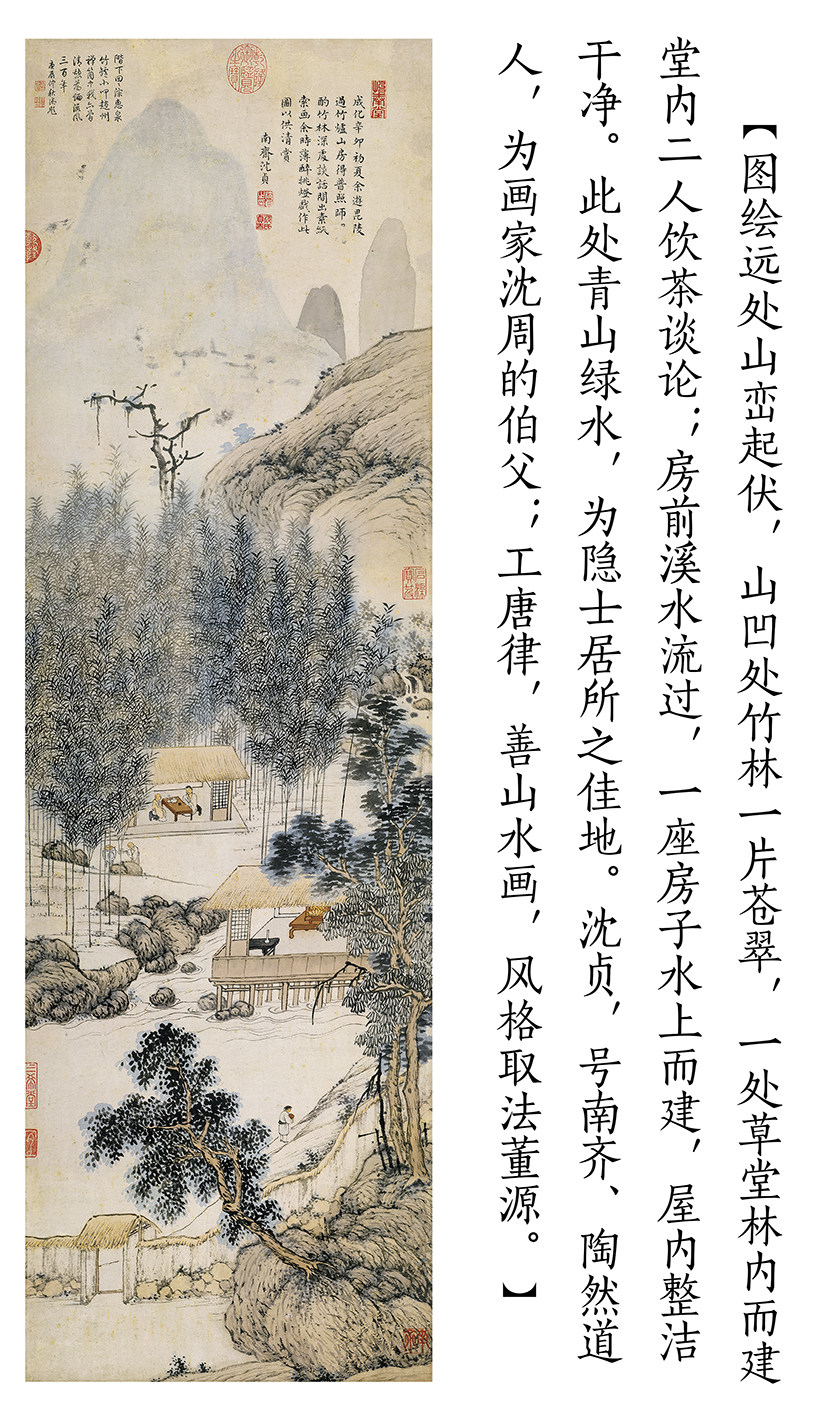 【图绘远处山峦起伏，山凹处竹林一片苍翠，一处草堂林内而建
堂内二人饮茶谈论；房前溪水流过，一座房子水上而建，屋内整洁
干净。此处青山绿水，为隐士居所之佳地。沈贞，号南齐、陶然道
人，为画家沈周的伯父；工唐律，善山水画，风格取法董源。】
成化辛卯初夏余遊毘陵
過竹爐山房得普照師〻
酌竹林深處談話間出素紙
索画余時薄醉挑燈戲作此
圖以供清賞
南齋沈貞
階下惠泉
竹爐小叩趙州
禪箇中我亦
清流風
三百年
御題